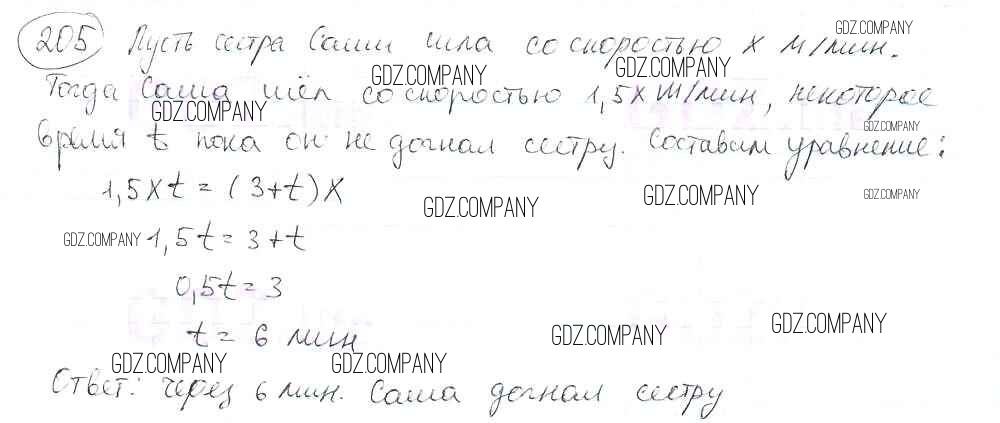 205 Пусть сестра Саши шла со скоростью x м/мин. GDZ.COMPANY
GDZ.COMPANY GDZ.COMPANY
Тогда Саша шёл со скоростью 1,5x м/мин, некоторое
GDZ.COMPANY GDZ.COMPANY
время t пока он не догнал сестру. Составим уравнение:
1,5xt = (3+t)x
GDZ.COMPANY GDZ.COMPANY GDZ.COMPANY
GDZ.COMPANY 1,5t = 3+t
0,5t = 3
t = 6 мин
GDZ.COMPANY GDZ.COMPANY
GDZ.COMPANY GDZ.COMPANY
Ответ: через 6 мин. Саша догнал сестру